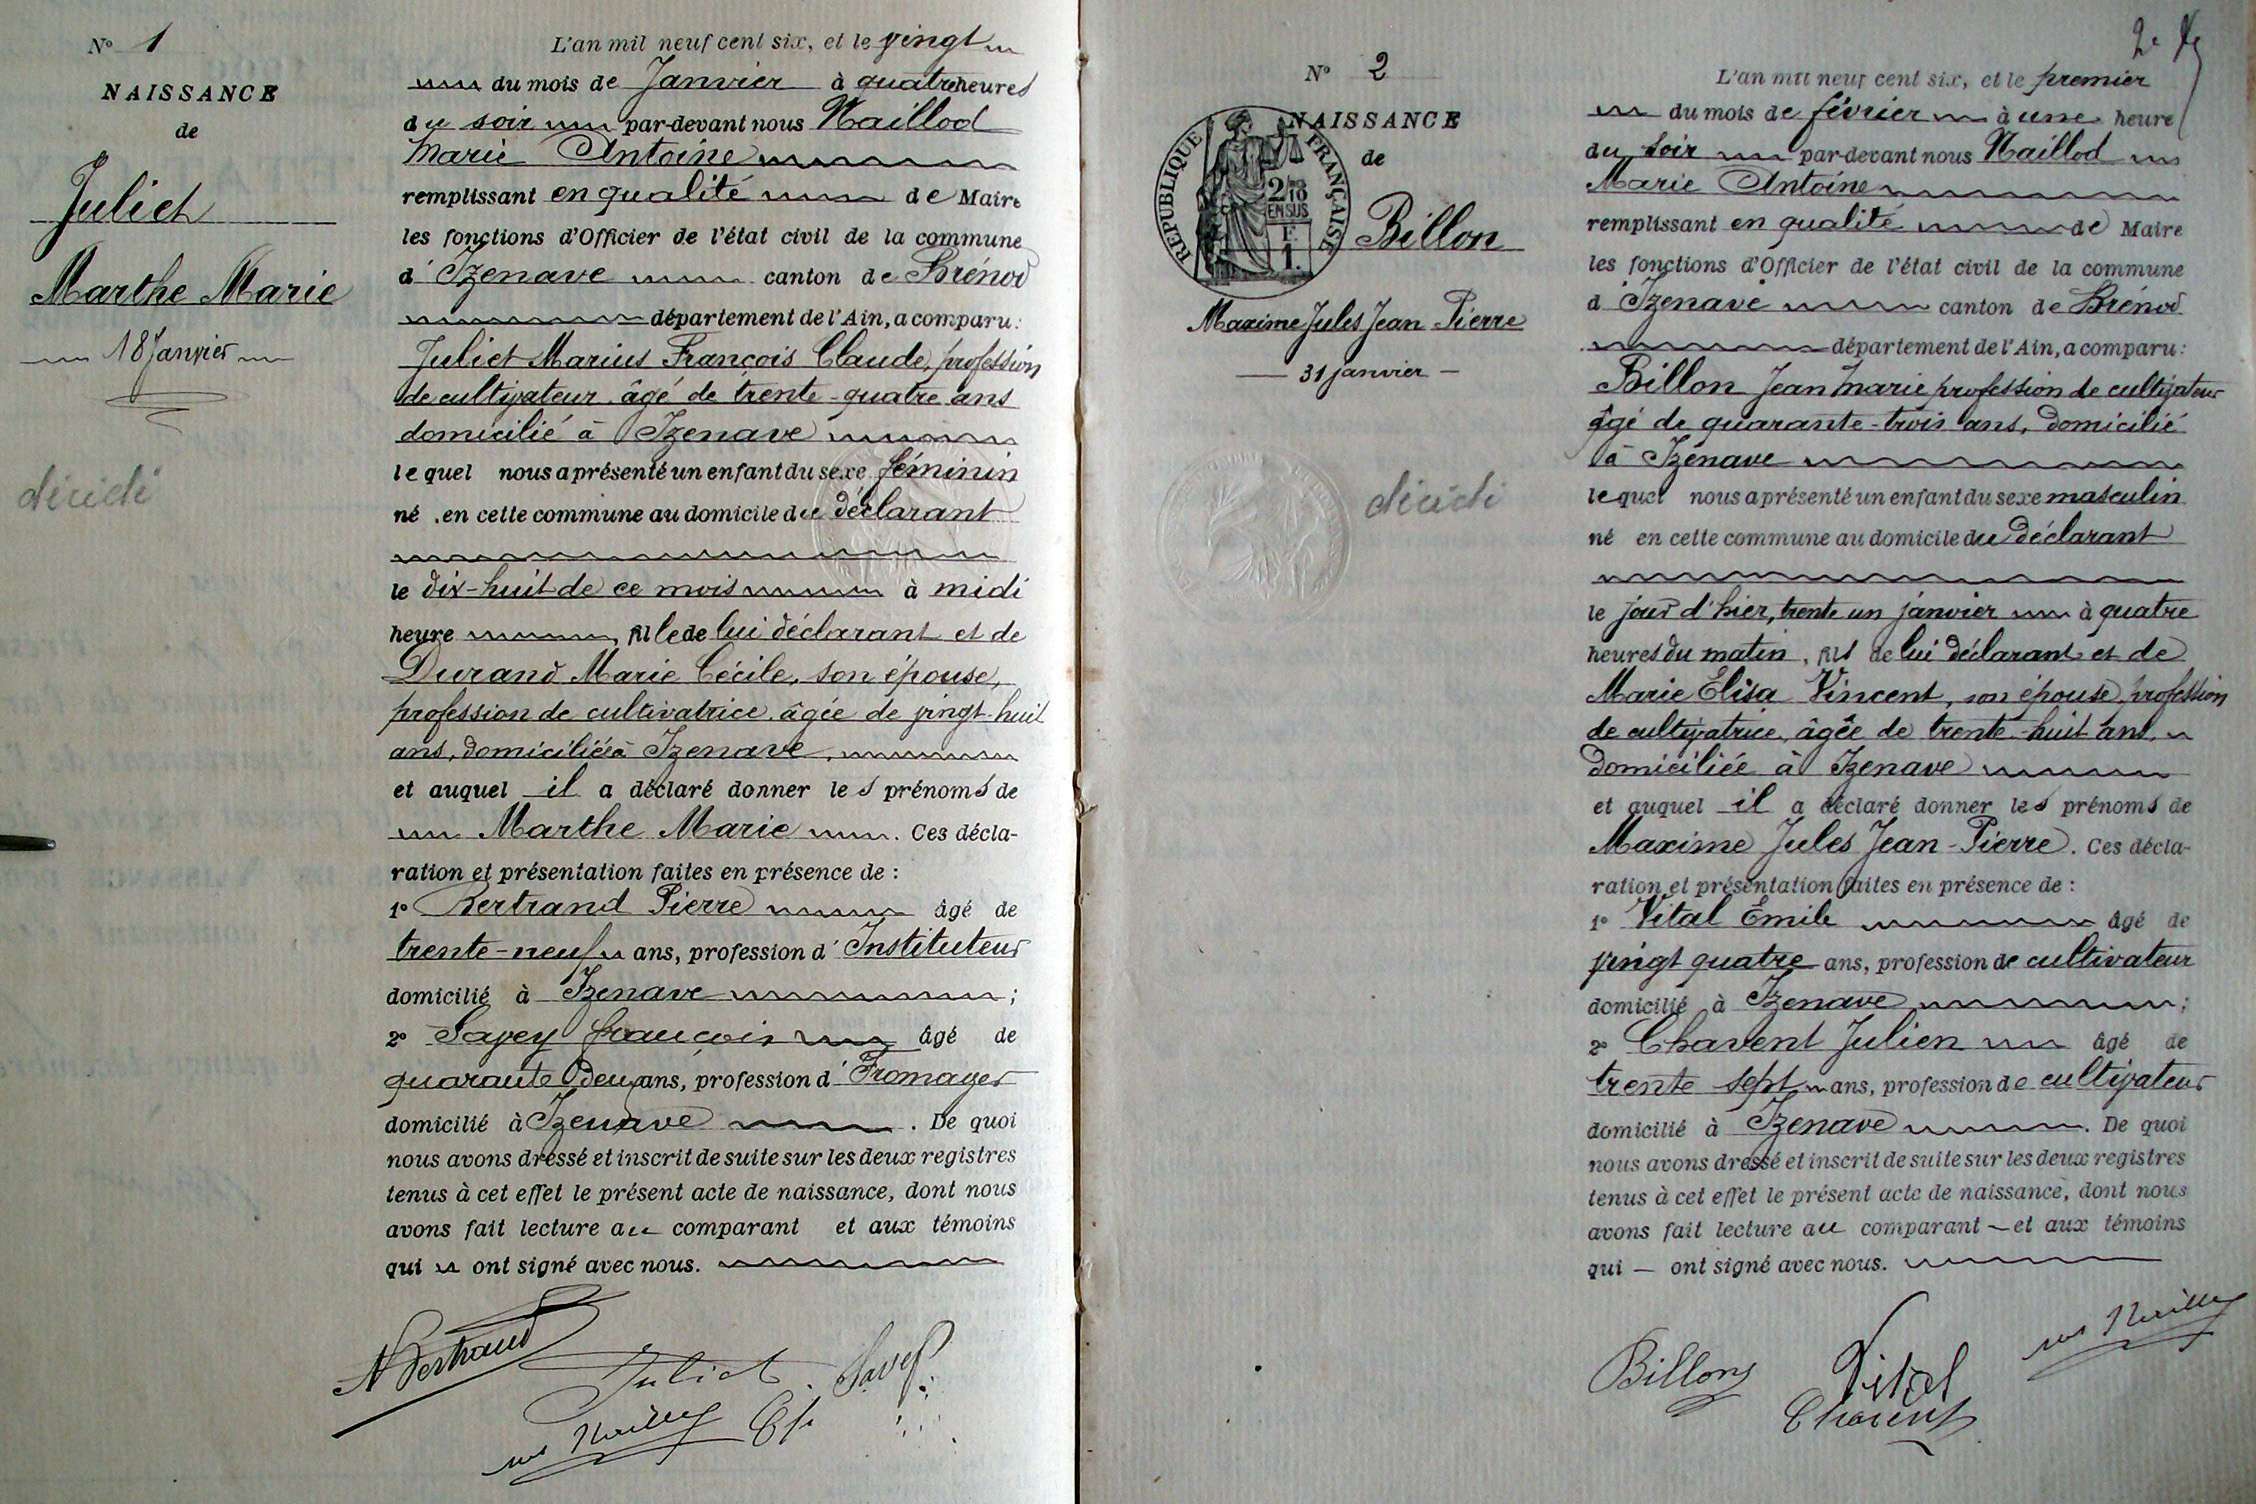 N° 1
NAISSANCE
de
Juliet
Marthe Marie
18 Janvier
décidé
L'an mil neuf cent six, et le vingt
du mois de Janvier à quatre heures
du soir par-devant nous Maillod
Marie Antoine
remplissant en qualité de Maire
les fonctions d'Officier de l'état civil de la commune
d'Izenave canton de Brénod
département de l'Ain, a comparu:
Juliet Marius François Claude, profession
de cultivateur âgé de trente-quatre ans
domicilié à Izenave
lequel nous a présenté un enfant du sexe féminin
né en cette commune au domicile du déclarant
le dix-huit de ce mois à midi
heure, fille de lui déclarant et de
Durand Marie Cécile, son épouse,
profession de cultivatrice âgée de vingt-huit
ans, domiciliée à Izenave,
et auquel il a déclaré donner les prénoms de
Marthe Marie. Ces décla-
ration et présentation faites en présence de :
1° Bertrand Pierre âgé de
trente-neuf ans, profession d'Instituteur
domicilié à Izenave ;
2° Savey françois âgé de
quarante deux ans, profession d Fromager
domicilié à Izenave. De quoi
nous avons dressé et inscrit de suite sur les deux registres
tenus à cet effet le présent acte de naissance, dont nous
avons fait lecture au comparant et aux témoins
qui ont signé avec nous.
Bertrand
Juliet Savey
N° 2
NAISSANCE
de
RÉPUBLIQUE FRANÇAISE
EN SUS
Billon
Maxime Jules Jean Pierre
31 janvier
décidé
L'an mil neuf cent six, et le premier
du mois de février à une heure
du soir par-devant nous Maillod
Marie Antoine
remplissant en qualité de Maire
les fonctions d'Officier de l'état civil de la commune
d'Izenave canton de Brénod
département de l'Ain, a comparu:
Billon Jean Marie profession de cultivateur
âgé de quarante-trois ans, domicilié
à Izenave
lequel nous a présenté un enfant du sexe masculin
né en cette commune au domicile du déclarant
le jour d'hier, trente un janvier à quatre
heures du matin, fils de lui déclarant et de
Marie Elisa Vincent, son épouse, profession
de cultivatrice, âgée de trente-huit ans,
domiciliée à Izenave
et auquel il a déclaré donner les prénoms de
Maxime Jules Jean-Pierre. Ces décla-
ration et présentation faites en présence de :
1° Vital Emile âgé de
vingt quatre ans, profession de cultivateur
domicilié à Izenave ;
2° Chavent Julien âgé de
trente sept ans, profession de cultivateur
domicilié à Izenave. De quoi
nous avons dressé et inscrit de suite sur les deux registres
tenus à cet effet le présent acte de naissance, dont nous
avons fait lecture au comparant et aux témoins
qui — ont signé avec nous.
Billon Vital
Chavent